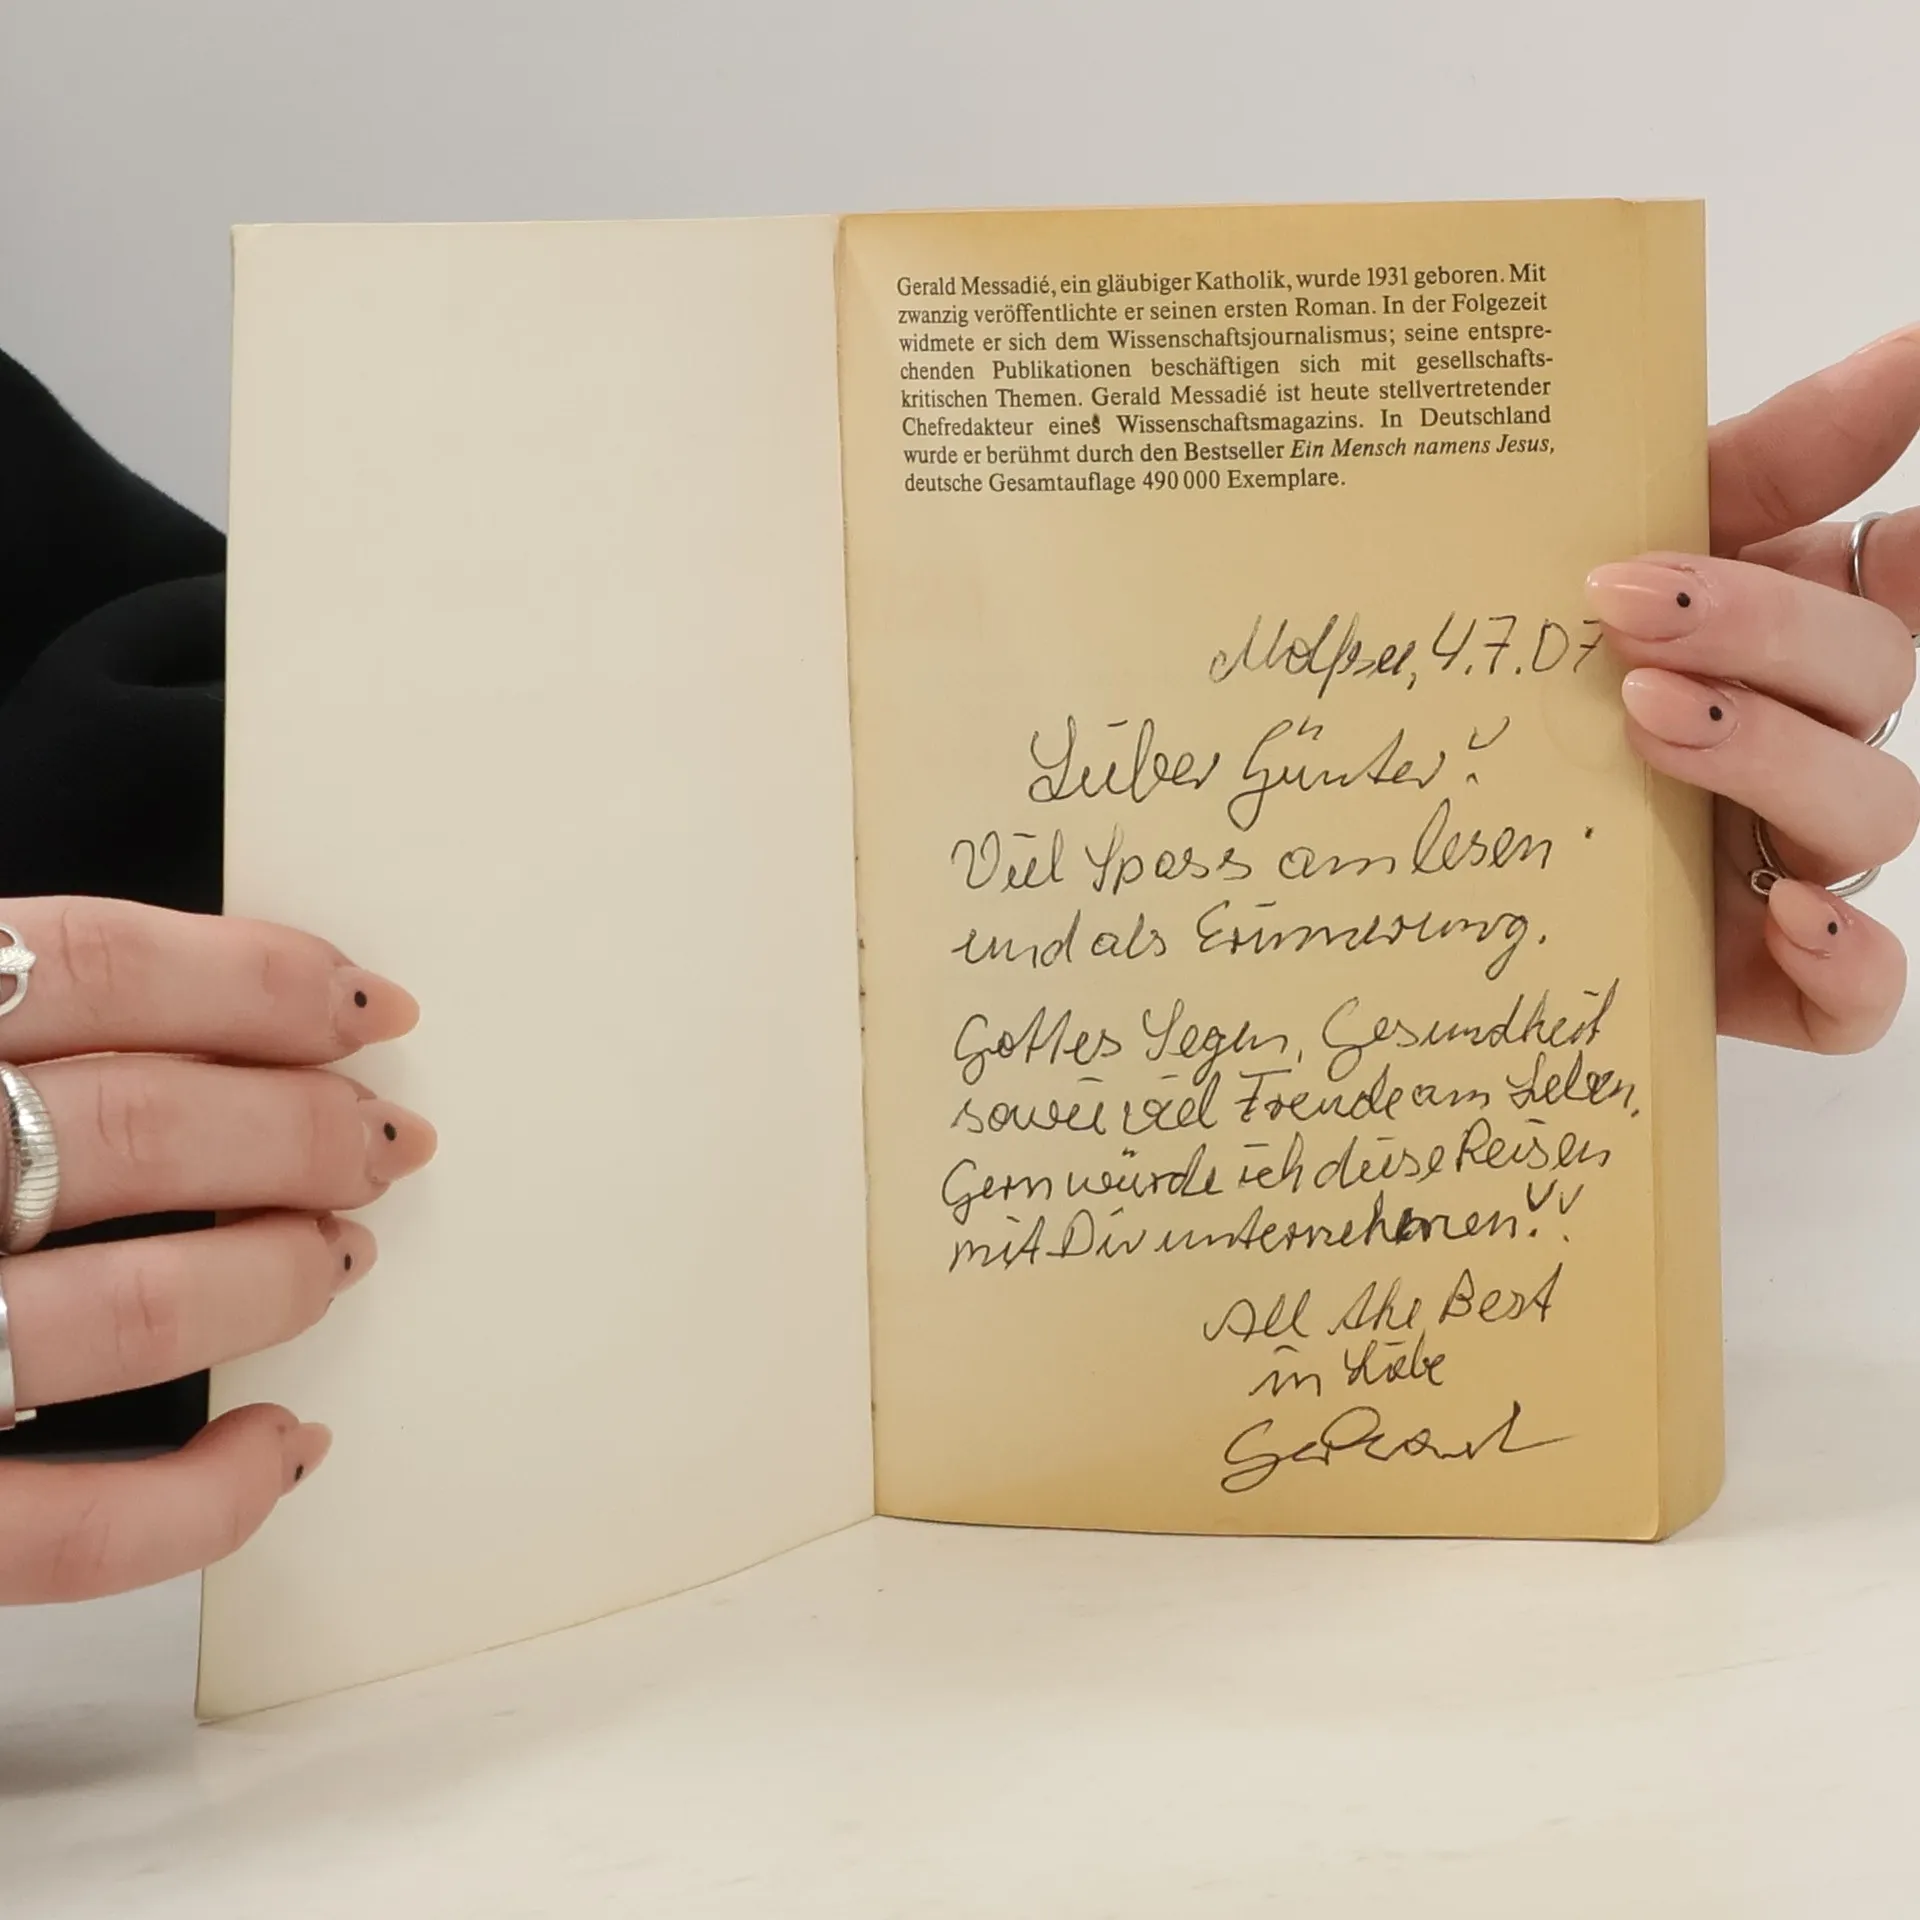 Gerald Messadié, ein gläubiger Katholik, wurde 1931 geboren. Mit
zwanzig veröffentlichte er seinen ersten Roman. In der Folgezeit
widmete er sich dem Wissenschaftsjournalismus; seine entspre-
chenden Publikationen beschäftigen sich mit gesellschafts-
kritischen Themen. Gerald Messadié ist heute stellvertretender
Chefredakteur eines Wissenschaftsmagazins. In Deutschland
wurde er berühmt durch den Bestseller Ein Mensch namens Jesus,
deutsche Gesamtauflage 490 000 Exemplare.
4.7.07
Lieber Günter!
Viel Spass am lesen
und als Erinnerung.
Gottes Segen, Gesundheit
sowie viel Freude am Leben.
Gern würde ich diese Reisen
mit Dir unternehmen!!
All the Best
in Liebe